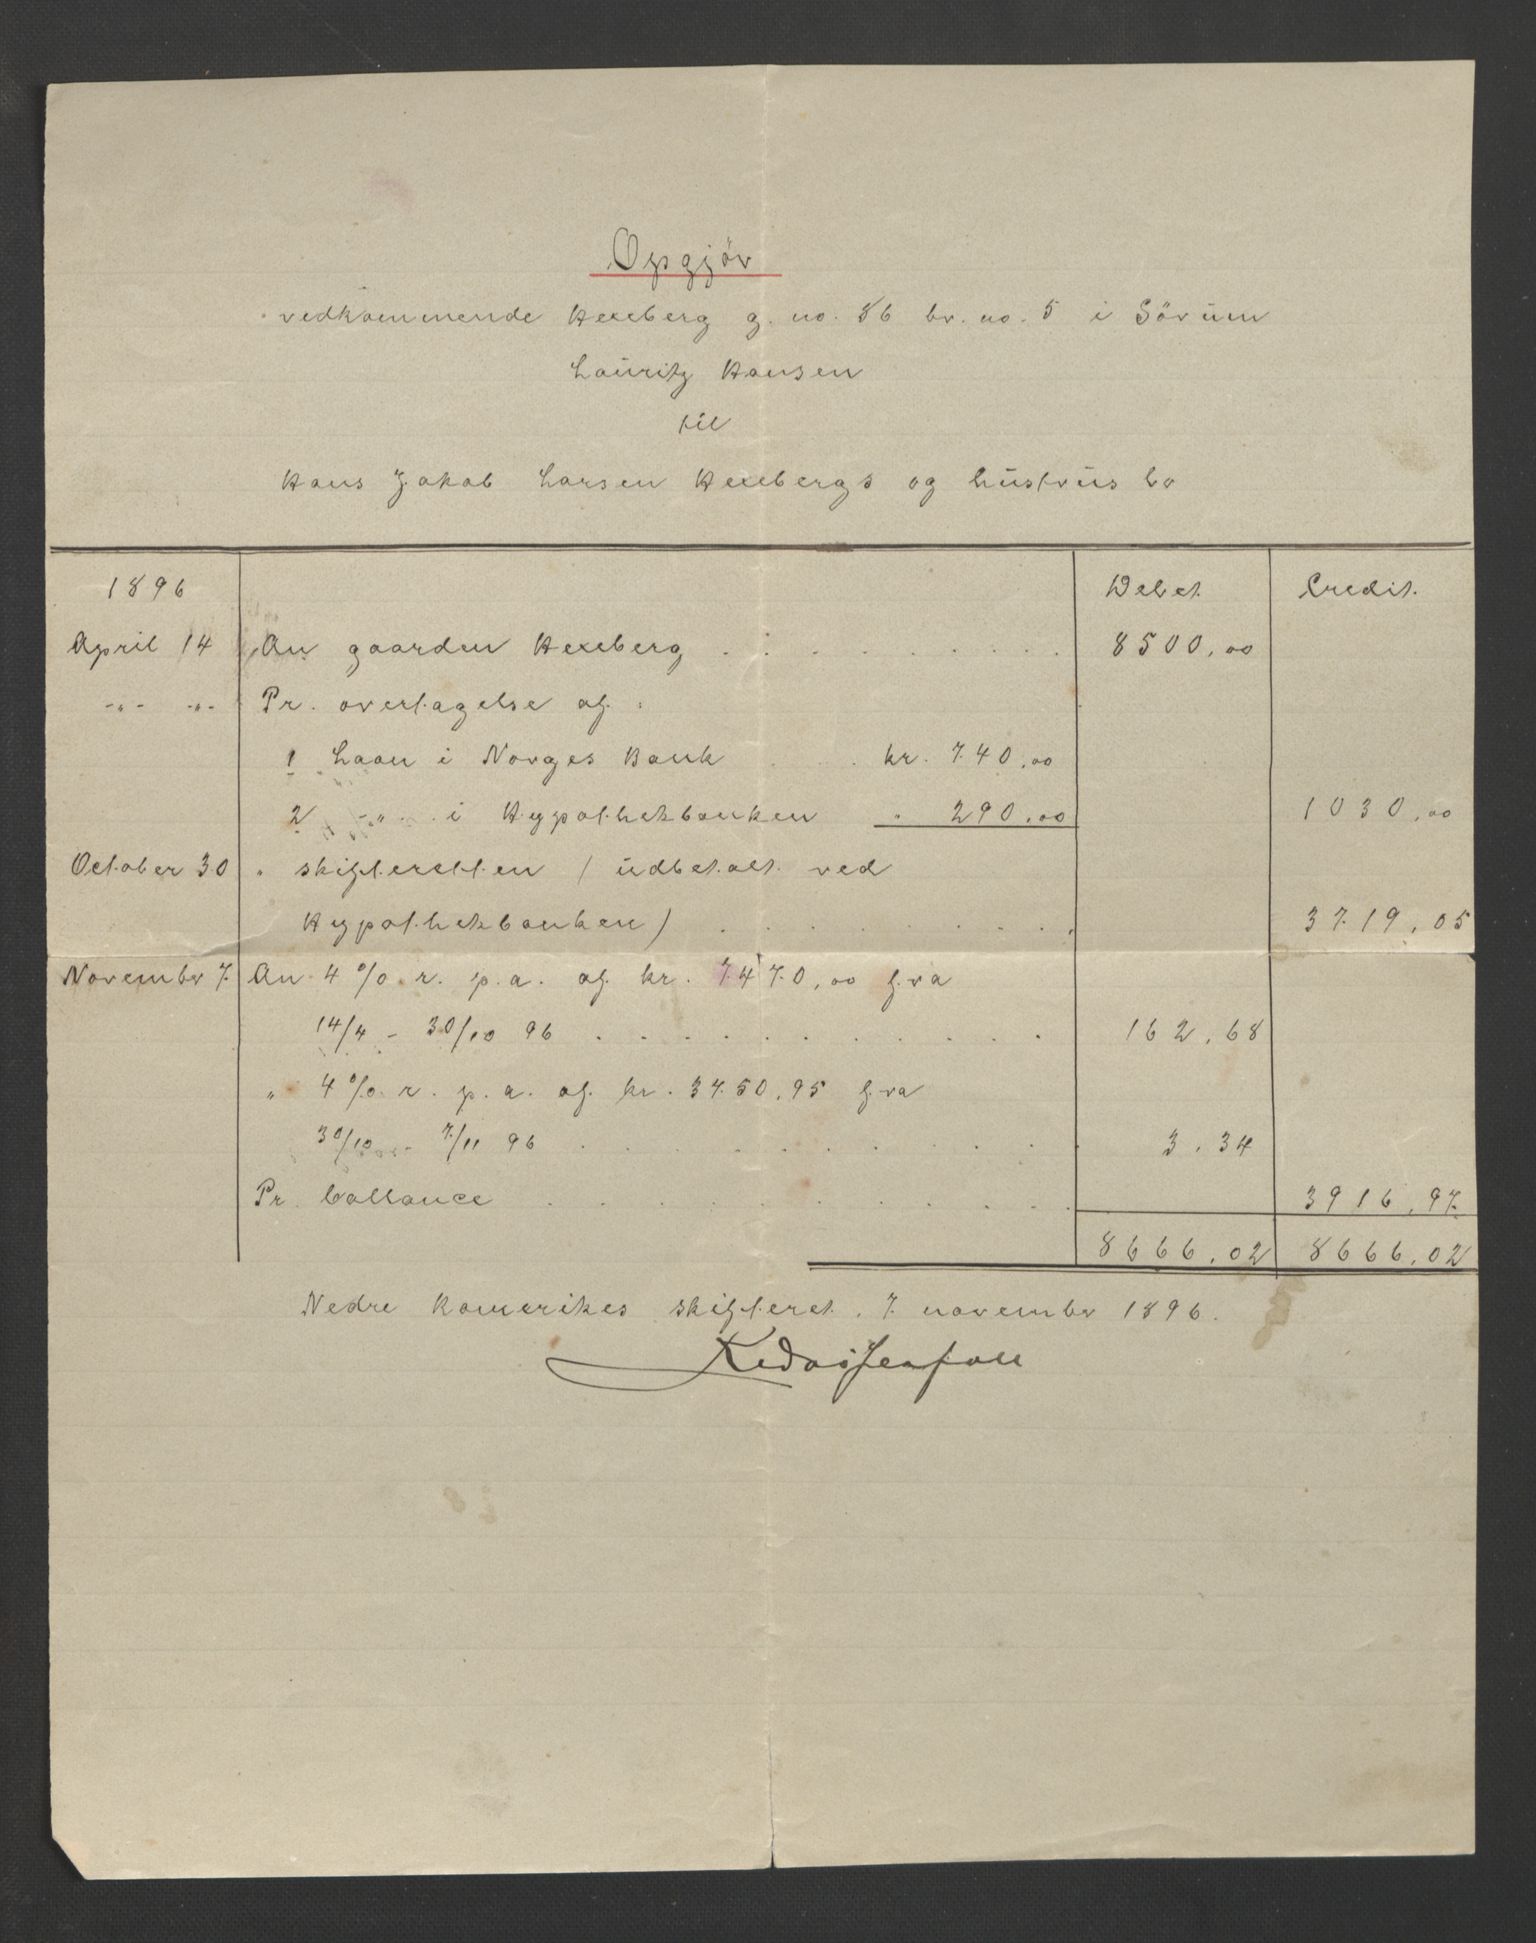 Opgjör
vedkommende Hexeberg g. no. 86 br. no. 5 i Sörum
Lauritz Hansen
til
Hans Jakob Larsen Hexebergs og hustrus bo
1896 Debet Credit.
April 14 An gaarden Hexeberg . . . . . . . . . 8500,00
-"- -"- Pr. overtagelse af :
1 Laan i Norges Bank . . . kr. 740,00
2 -"- i Hypothekbanken " 290,00 1030,00
October 30 " skifteretten (udbetalt ved
Hypothekbanken) . . . . . . . . . 3719,05
November 7. An 4 % r. p.a. af kr. 7470,00 fra
14/4 - 30/10 96 . . . . . . . . . . 162,68
" 4 % r. p.a. af kr. 3750,95 fra
30/10 - 7/11 96 . . . . . . . . . . 3,34
Pr. ballance . . . . . . . . . . 3916,97
8666,02 8666,02
Nedre Romerikes skifteret, 7. november 1896.